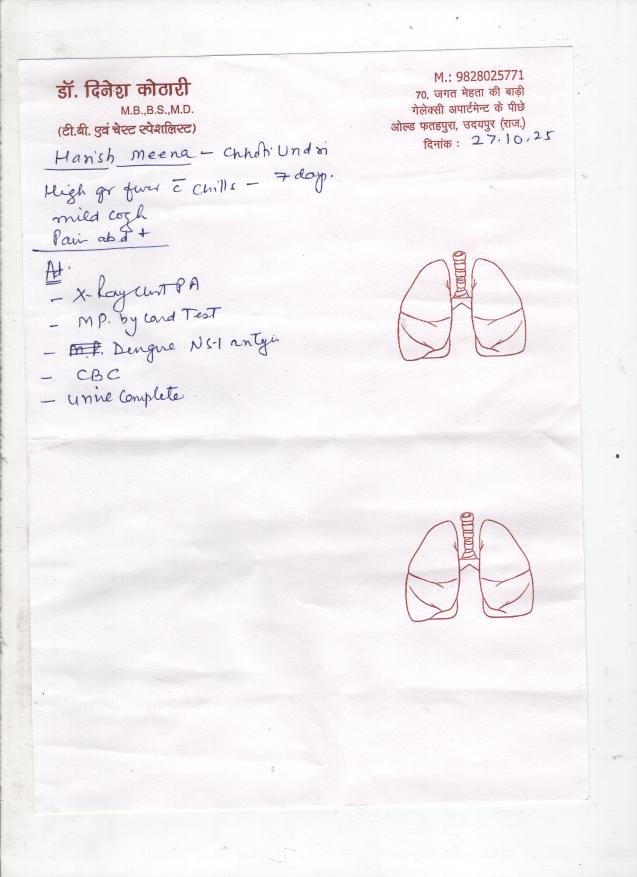 डॉ. दिनेश कोठारी
M.B.,B.S.,M.D.
(टी.बी. एवं चेस्ट स्पेशलिस्ट)
M.: 9828025771
70, जगत मेहता की बाड़ी
गेलेक्सी अपार्टमेन्ट के पीछे
ओल्ड फतहपुरा, उदयपुर (राज.)
दिनांक : 27.10.25
Harish Meena - Chhoti Undri
High gr fever c̄ chills - 7 days.
mild cogh
Pain abd +
Ad.
- X-Ray Chest PA
- MP. by Card Test
- Dengue NS-1 antgin
- CBC
- Urine Complete